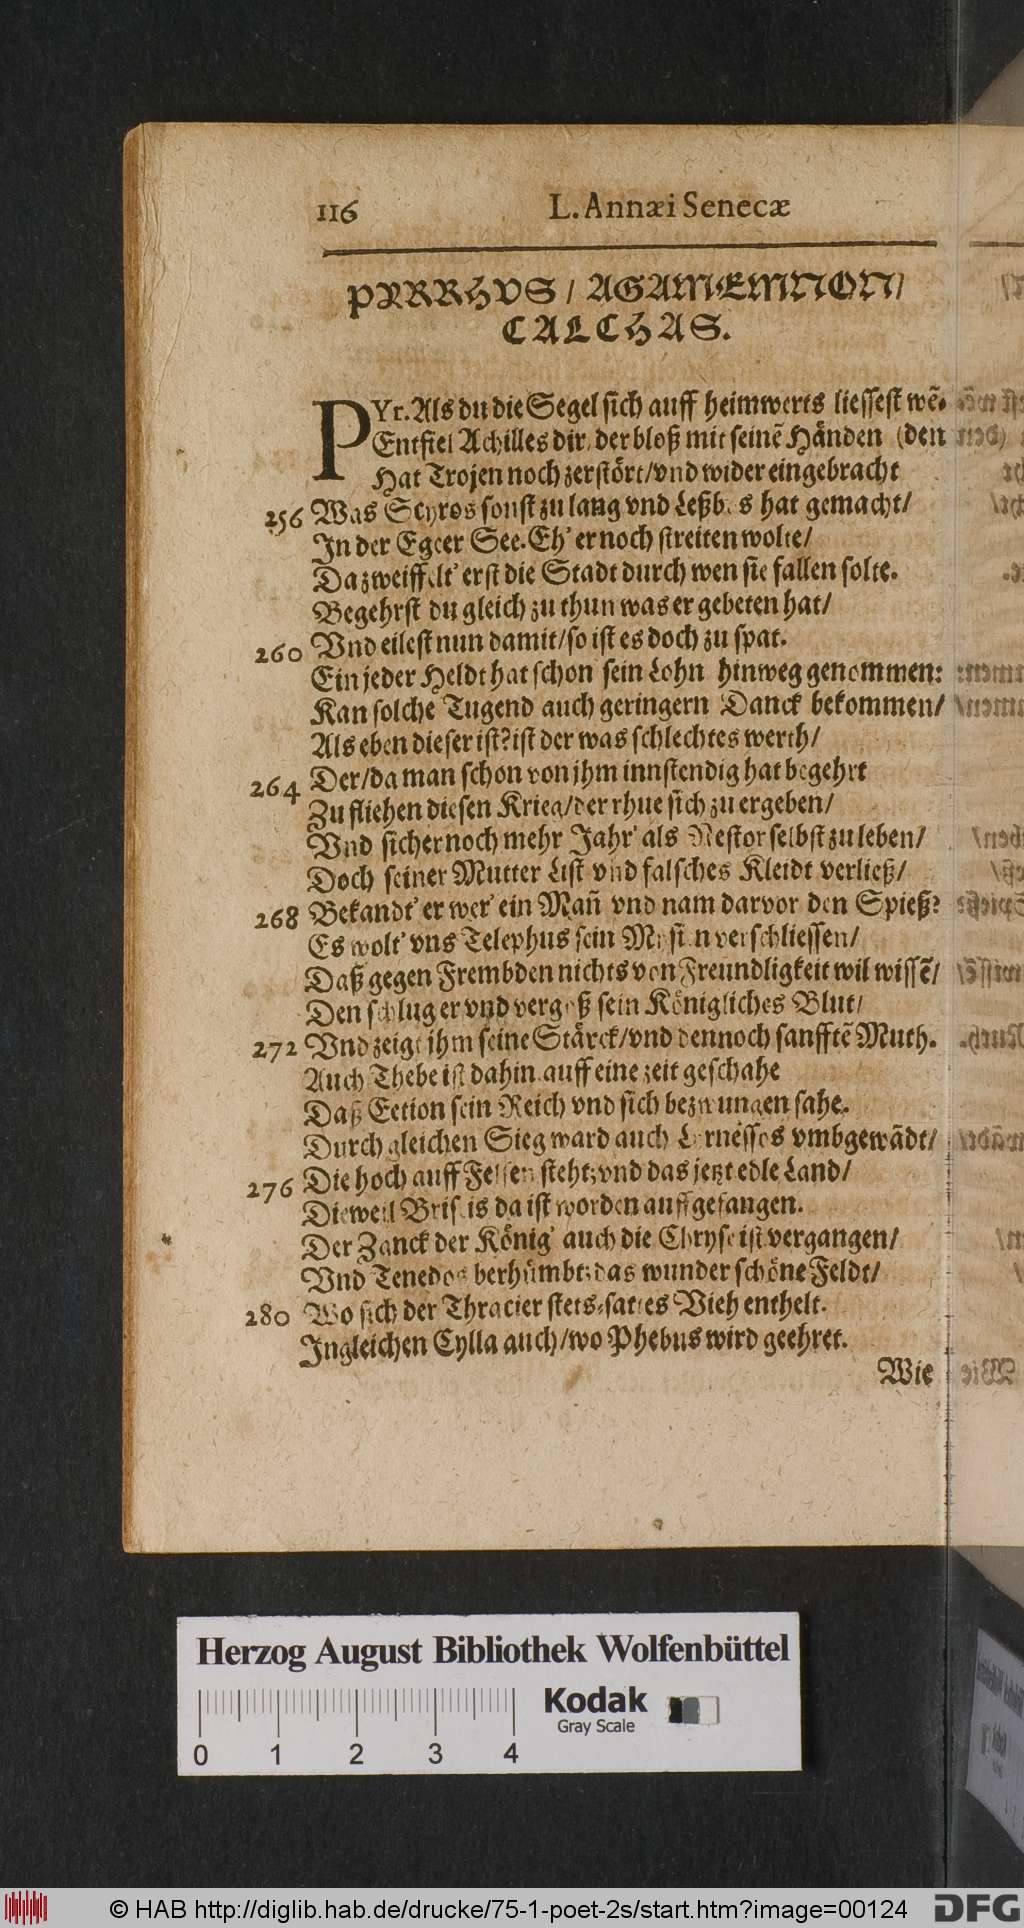 116 L. Annæi Senecæ
PYRRHVS / AGAMEMNON /
CALCHAS.
PYr. Als du die Segel sich auff heimwerts liessest wẽ-
Entfiel Achilles dir, der bloß mit seinẽ Händen (den
Hat Trojen noch zerstört/vnd wider eingebracht
256 Was Scyros sonst zu lang vnd Leßbos hat gemacht/
In der Egeer See. Eh' er noch streiten wolte/
Da zweiffelt' erst die Stadt durch wen sie fallen solte.
Begehrst du gleich zu thun was er gebeten hat/
260 Vnd eilest nun damit/so ist es doch zu spat.
Ein jeder Heldt hat schon sein Lohn hinweg genommen:
Kan solche Tugend auch geringern Danck bekommen/
Als eben dieser ist? ist der was schlechtes werth/
264 Der/da man schon von ihm innstendig hat begehrt
Zu fliehen diesen Krieg/der rhue sich zu ergeben/
Vnd sicher noch mehr Jahr' als Nestor selbst zu leben/
Doch seiner Mutter List vnd falsches Kleidt verließ/
268 Bekandt' er wer' ein Mañ vnd nam darvor den Spieß?
Es wolt' vns Telephus sein Mysien verschliessen/
Daß gegen Frembden nichts von Freundligkeit wil wissẽ/
Den schlug er vnd vergoß sein Königliches Blut/
272 Vnd zeigt ihm seine Stärck/vnd dennoch sanfftẽ Muth.
Auch Thebe ist dahin. auff eine zeit geschahe
Daß Eetion sein Reich vnd sich bezwungen sahe.
Durch gleichen Sieg ward auch Lernessos vmbgewãdt/
276 Die hoch auff Felsen steht; vnd das jetzt edle Land/
Dieweil Briseis da ist worden auffgefangen.
Der Zanck der König' auch die Chryse ist vergangen/
Vnd Tenedos berhümbt; das wunder schöne Feldt/
280 Wo sich der Thracier stets-sattes Vieh enthelt.
Ingleichen Cylla auch/wo Phebus wird geehret.
Wie
Herzog August Bibliothek Wolfenbüttel
Kodak
Gray Scale
0 1 2 3 4
© HAB http://diglib.hab.de/drucke/75-1-poet-2s/start.htm?image=00124 DFG